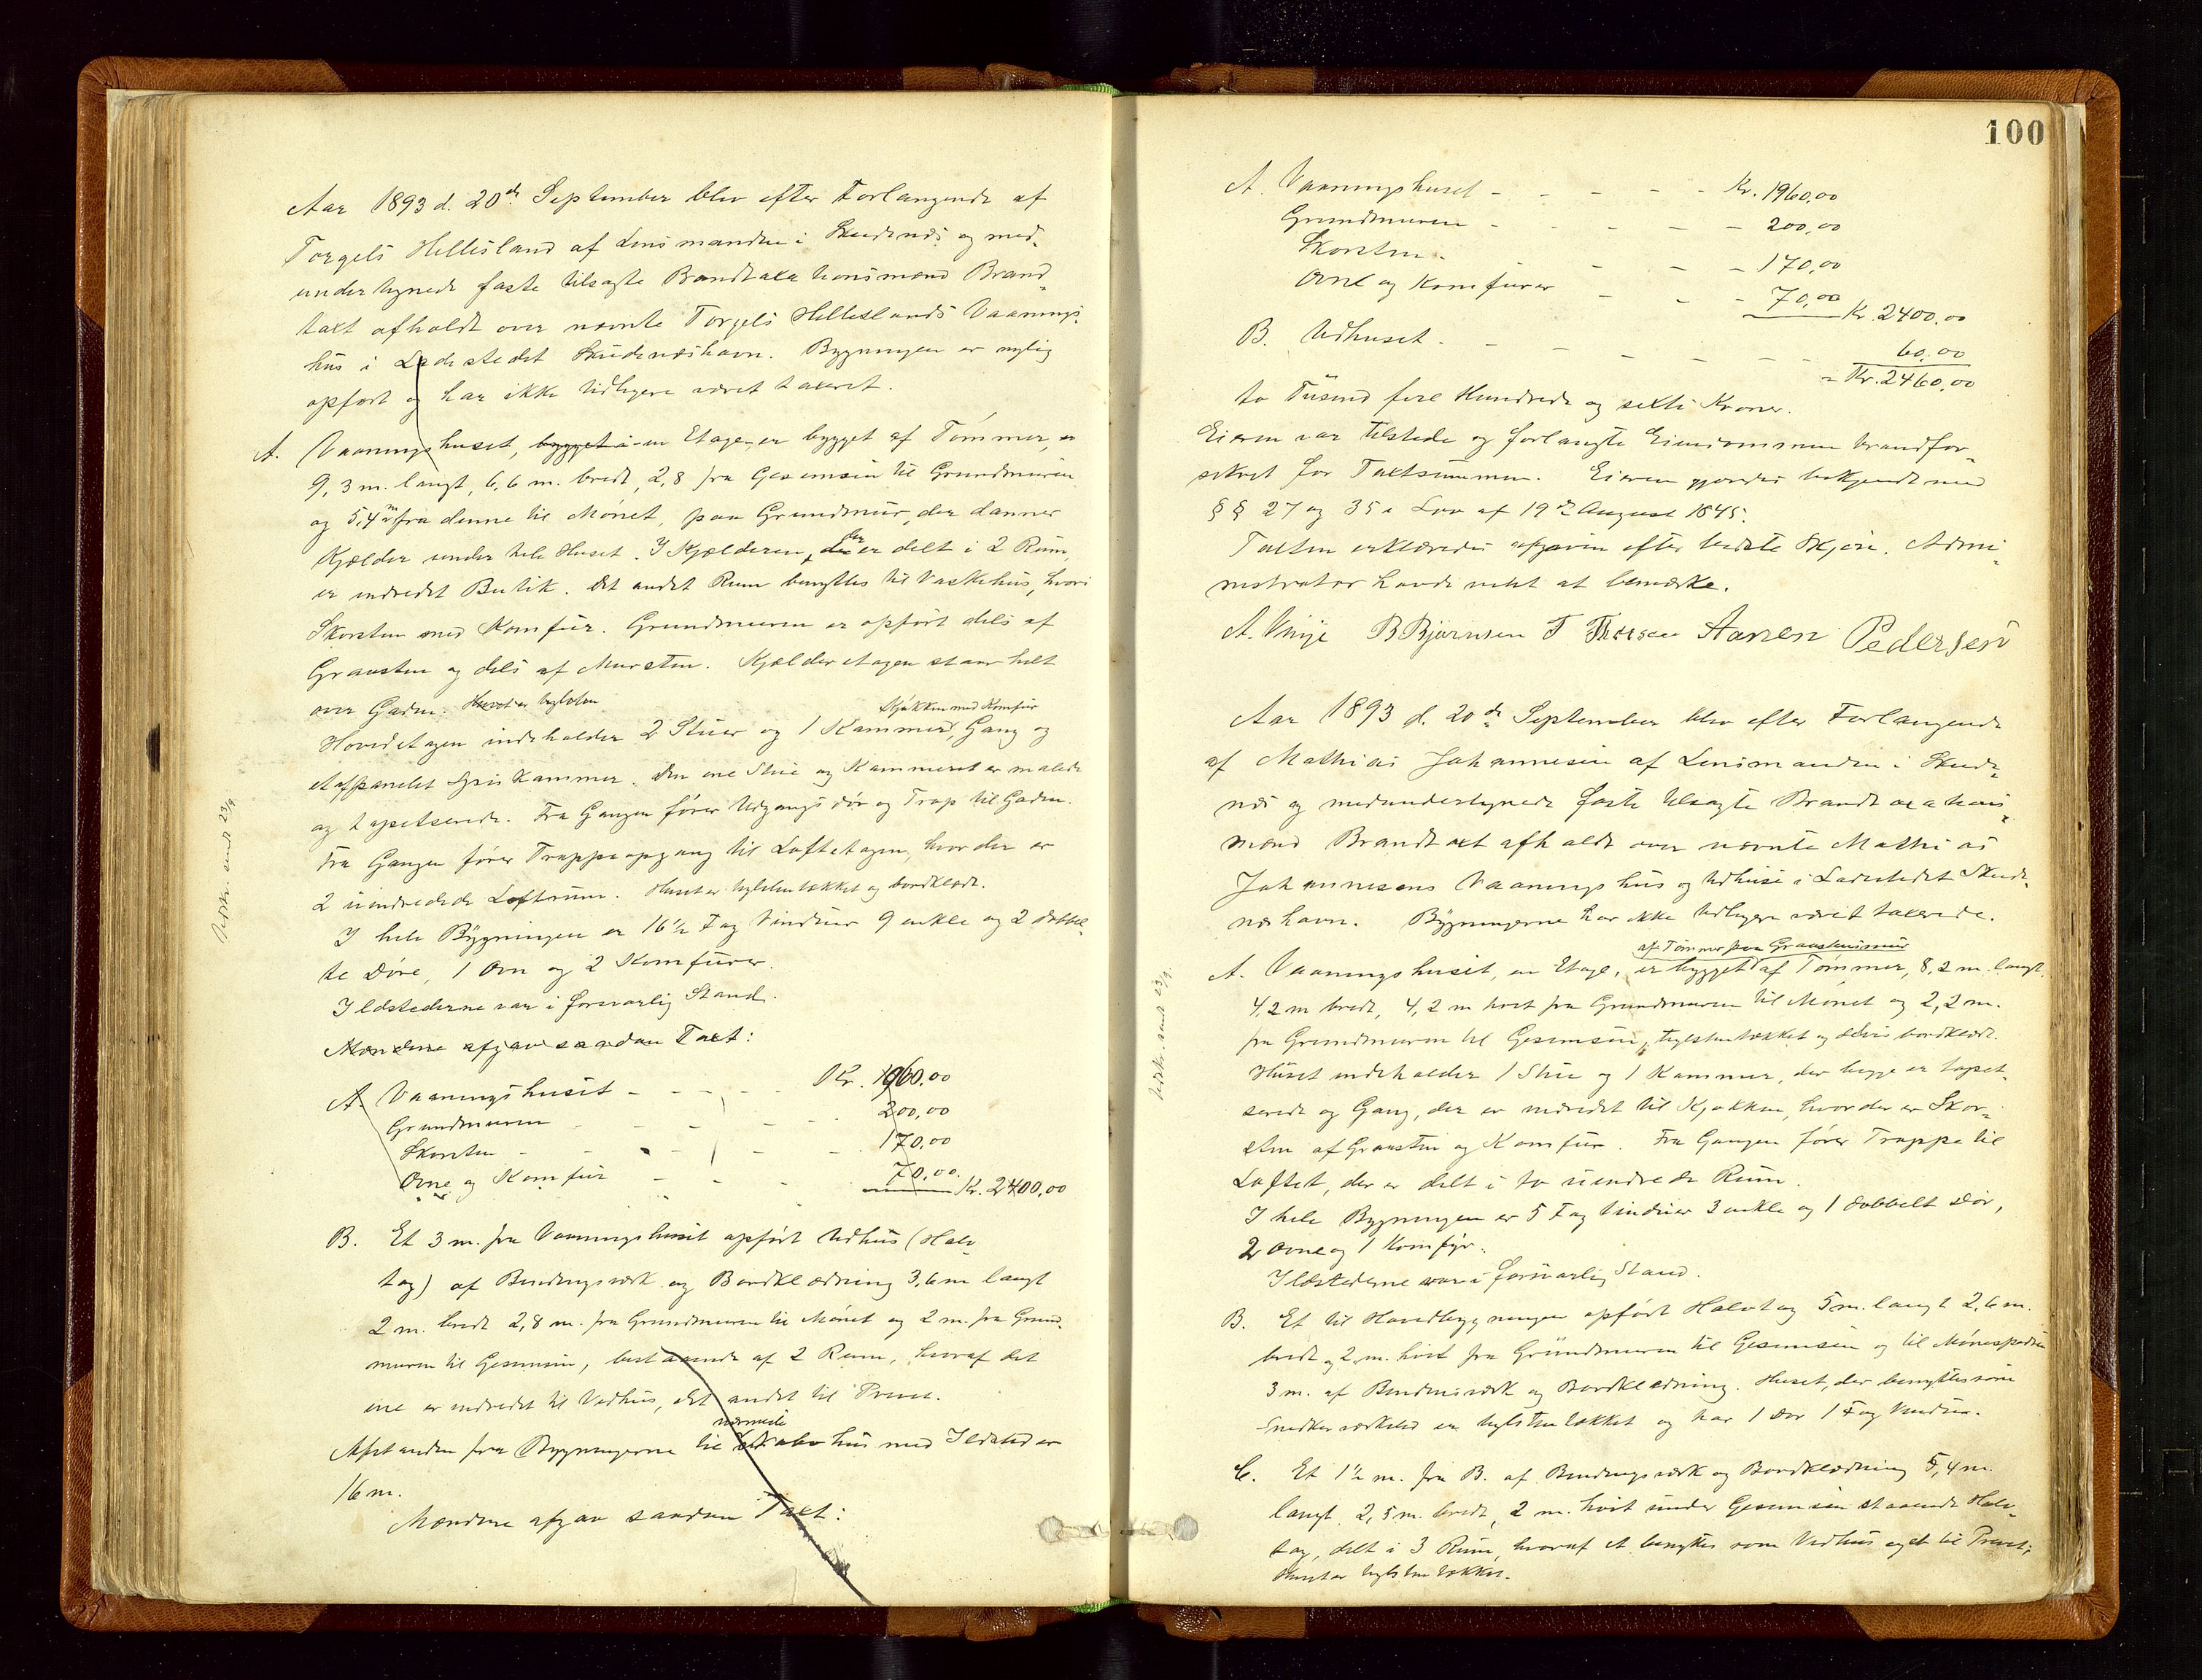 Aar 1893 d. 20de September blev efter Forlangende af
Torgels Hellesland af Lensmanden i Skudenæs og med-
undertegnede faste tilsagte Brandtaxationsmænd Brand-
taxt afholdt over nævnte Torgels Helleslands Vaanings-
hus i Ladestedet Skudenæshavn. Bygningen er nylig
opført og har ikke tidligere været taxeret.
A. Vaaningshuset, bygget i en Etage, er bygget af Tømmer, er
9,3 m. langt, 6,6 m. bredt, 2,8 fra Gesimsen til Grundmuren
og 5,4 m fra denne til Mønet, paa Grundmur, der danner
Kjælder under hele Huset. I Kjælderen, der er delt i 2 Rum,
er indredet Butik. Det andet Rum benyttes til Vaskehus, hvori
Skorsten med Komfur. Grundmuren er opført dels af
Graasten og dels af Mursten. Kjælderetagen staar helt
over Gaden.
Hovedetagen indeholder 2 Stuer og 1 Kammer, Kjøkken med Komfur, Gang og
et afpanelet Spiskammer. Den ene Stue og Kammeret er malede
og tapetserede. Fra Gangen fører Udgangsdør og Trap til Gaden.
Fra Gangen fører Trappeopgang til Loftetagen, hvor der er
2 uindredede Loftrum. Huset er teglstentækket og bordklædt.
I hele Bygningen er 16 1/2 Fag Vinduer 9 enkle og 2 dobbel-
te Døre, 1 Ovn og 2 Komfurer.
Ildstederne var i forsvarlig Stand.
Mændene afgav saadan Taxt:
A. Vaaningshuset - - - Kr. 1960,00
Grundmuren - - - 200,00
Skorsten - - - 170,00
Ovne og Komfur - - - 70,00 Kr. 2400,00
B. Et 3 m. fra Vaaningshuset opført Udhus (Halv-
tag) af Bindingsværk og Bordklædning 3,6 m langt
2 m. bredt 2,8 m. fra Grundmuren til Mønet og 2 m. fra Grund-
muren til Gesimsen, bestaaende af 2 Rum, hvoraf det
ene er indredet til Vedhus, det andet til Privet.
Afstanden fra Bygningerne til nærmeste Nabohus med Ildsted er
16 m.
Mændene afgav saadan Taxt:
Udskr. sendt 23/9
100
A. Vaaningshuset - - - - - Kr. 1960,00
Grundmuren - - - - - 200,00
Skorsten - - - - 170,00
Ovne og Komfurer - - - 70,00 Kr. 2400,00
B. Udhuset - - - - - - 60,00
= Kr. 2460,00
to Tusend fire Hundrede og sexti Kroner.
Eieren var tilstede og forlangte Eiendommen brandfor-
sikret for Taxtsummen. Eieren gjordes bekjendt med
§§ 27 og 35 i Lov af 19de August 1845.
Taxten erklæredes afgiven efter bedste Skjøn. Admi-
nistrator havde intet at bemærke.
A. Vinje B Bjørnsen T Thorsen Aanen Pedersen
Aar 1893 d. 20de September blev efter Forlangende
af Mathias Johannesen af Lensmanden i Skude-
næs og medundertegnede faste tilsagte Brandtaxations-
mænd Brandtaxt afholdt over nævnte Mathias
Johannesens Vaaningshus og Udhuse i Ladestedet Skude-
næshavn. Bygningerne har ikke tidligere været taxerede.
A. Vaaningshuset, en Etage, er bygget af Tømmer paa Graastensmur af Tømmer, 8,2 m. langt,
4,2 m bredt, 4,2 m høit fra Grundmuren til Mønet og 2,2 m.
fra Grundmuren til Gesimsen, teglstentækket og delvis bordklædt.
Huset indeholder 1 Stue og 1 Kammer, der begge er tapet-
serede og Gang, der er indredet til Kjøkken, hvor der er Skor-
sten af Graasten og Komfur. Fra Gangen fører Trappe til
Loftet, der er delt i to uindrede Rum.
I hele Bygningen er 5 Fag Vinduer 3 enkle og 1 dobbelt Dør,
2 Ovne og 1 Komfyr.
Ildstederne var i forsvarlig Stand.
B. Et til Hovedbygningen opført Halvtag 5 m. langt 2,6 m.
bredt og 2 m. høit fra Grundmuren til Gesimsen og til
3 m. af Bindingsværk og Bordklædning. Huset, der benyttes som
Snedkerværksted er teglstentækket og har 1 Dør 1 Fag Vindu.
C. Et 1 1/2 m. fra B. af Bindingsværk og Bordklædning 5,4 m.
langt, 2,5 m. bredt, 2 m. høit under Gesimsen staaende Halv-
tag, delt i 3 Rum, hvoraf et benyttes som Vedhus og et til Privet;
Huset er teglstentækket.
Udskr. sendt 23/9